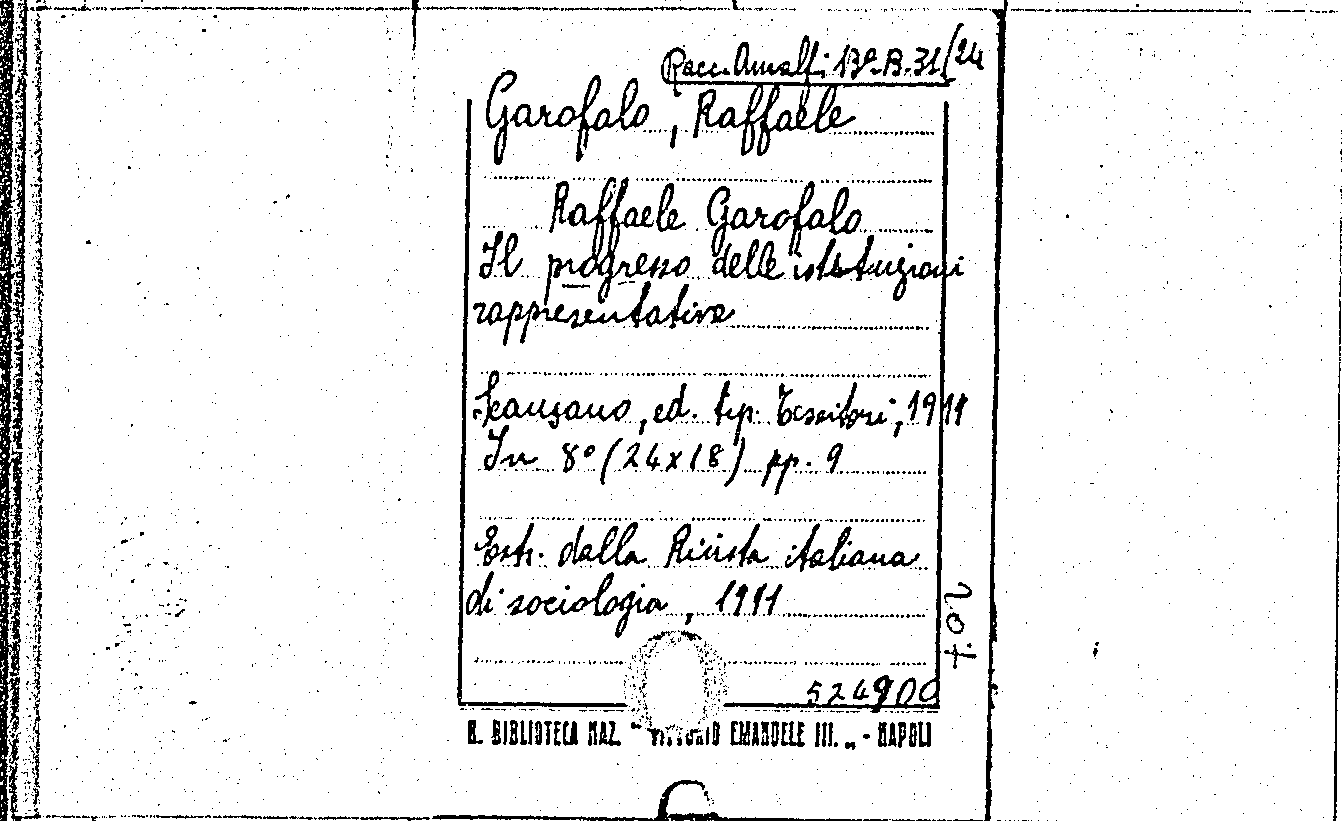 Racc. Amalfi Bª. B. 31/24
Garofalo, Raffaele
Raffaele Garofalo
Il progresso delle istituzioni
rappresentative
Scansano, ed. tip. Tessitori, 1911
In 8° (24x18) pp. 9
Estr. dalla Rivista italiana
di sociologia, 1911
524900
B. BIBLIOTECA NAZ. " VITTORIO EMANUELE III. „ - NAPOLI